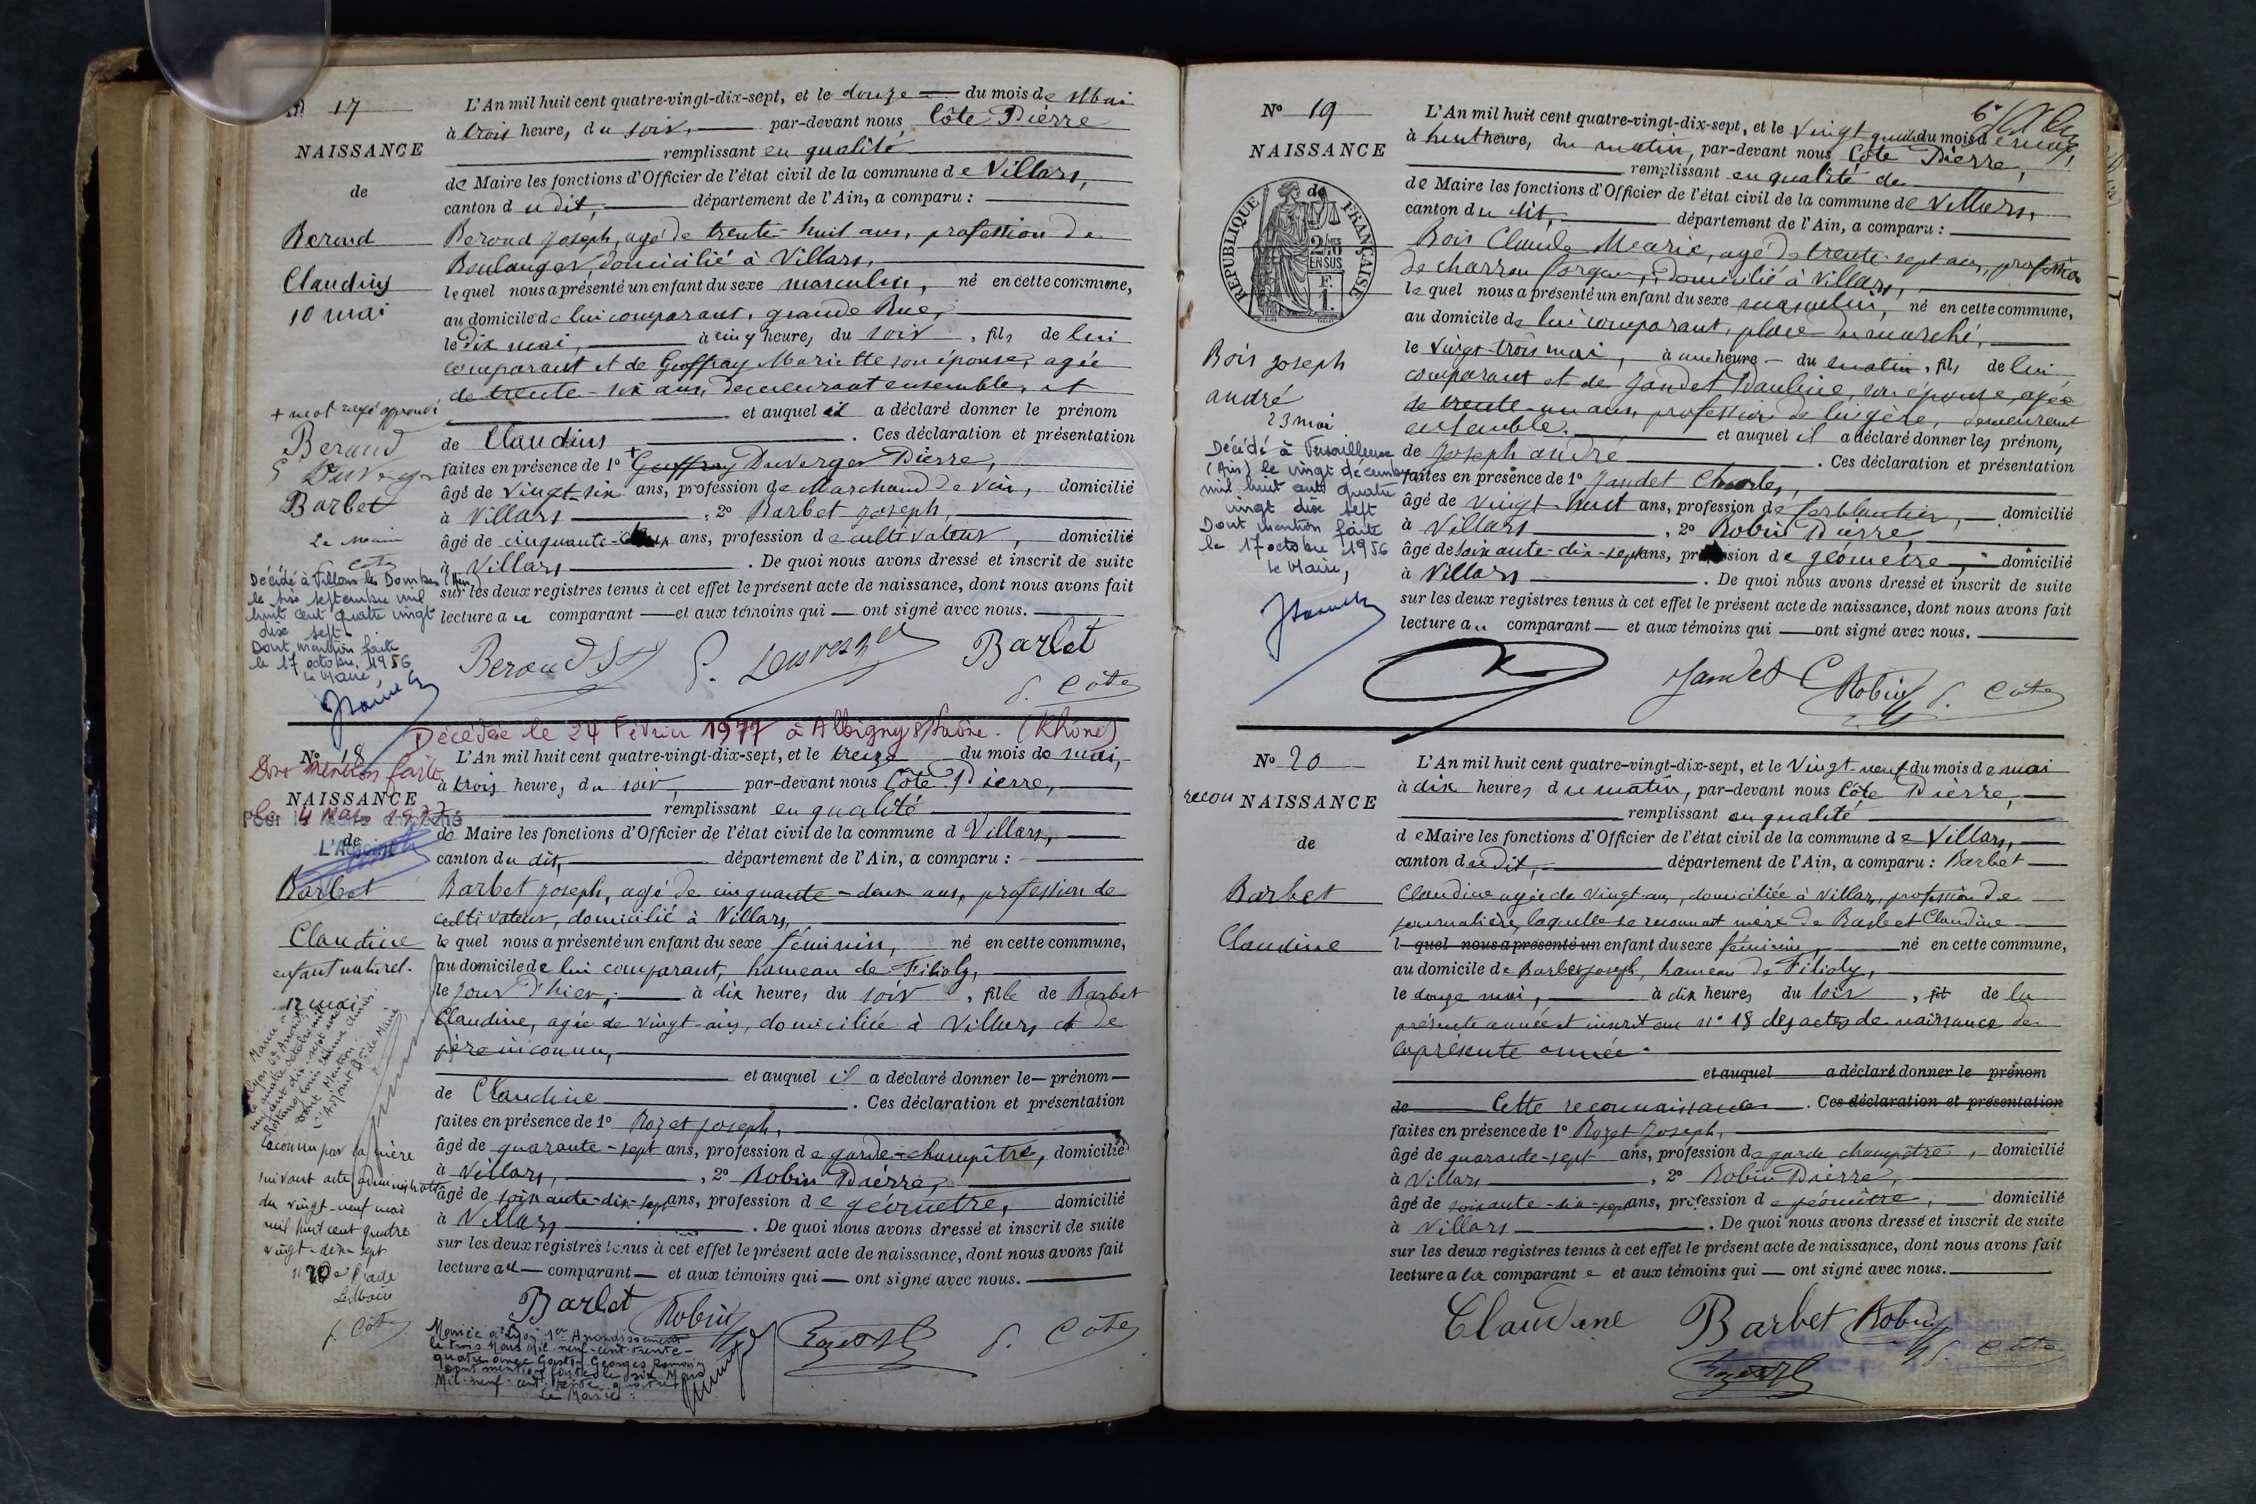 No 17
NAISSANCE
de
Beroud
Claudius
10 mai
L'An mil huit cent quatre-vingt-dix-sept, et le douze du mois de Mai
à trois heure, du soir, par-devant nous Côte Pierre
remplissant en qualité
de Maire les fonctions d'Officier de l'état civil de la commune de Villars,
canton du dit, département de l'Ain, a comparu :
Beroud Joseph, agé de trente-huit ans, profession de
Boulanger, domicilié à Villars,
lequel nous a présenté un enfant du sexe masculin, né en cette commune,
au domicile de lui comparant, grande Rue,
le Dix mai, à cinq heure, du soir, fils de lui
comparant et de Geoffray Mariette son épouse, agée
de trente-six ans, demeurant ensemble, et
et auquel il a déclaré donner le prénom
de Claudius. Ces déclaration et présentation
faites en présence de 1o + Geoffray Duverger Pierre,
âgé de vingt-six ans, profession de Marchand de vin, domicilié
à Villars, 2o Barbet Joseph,
âgé de cinquante-deux ans, profession de cultivateur, domicilié
à Villars. De quoi nous avons dressé et inscrit de suite
sur les deux registres tenus à cet effet le présent acte de naissance, dont nous avons fait
lecture au comparant et aux témoins qui ont signé avec nous.
+ mot rayé approuvé
Beroud
Barbet
Le Maire
Décédé à Villars les Dombes (Ain)
le six septembre mil
huit cent quatre vingt
dix sept
Dont mention faite
le 17 octobre 1956
Le Maire,
Beroud
P. Duverger
Barbet
P. Côte
Décédée le 24 Février 1977 à Albigny s/Saône. (Rhône)
Dont mention faite
le 4 Mars 1977
L'Adjoint
No 18
NAISSANCE
de
Barbet
Claudine
enfant naturel.
12 mai
L'An mil huit cent quatre-vingt-dix-sept, et le treize du mois de mai,
à trois heure, du soir, par-devant nous Côte Pierre,
remplissant en qualité
de Maire les fonctions d'Officier de l'état civil de la commune d Villars,
canton du dit, département de l'Ain, a comparu :
Barbet Joseph, agé de cinquante-deux ans, profession de
cultivateur, domicilié à Villars,
lequel nous a présenté un enfant du sexe féminin, né en cette commune,
au domicile de lui comparant, hameau de Filioly,
le jour d'hier, à dix heures, du soir, fille de Barbet
Claudine, agée de vingt ans, domiciliée à Villars et de
père inconnu,
et auquel il a déclaré donner le prénom
de Claudine. Ces déclaration et présentation
faites en présence de 1o Rozet Joseph,
âgé de quarante-sept ans, profession de garde-champêtre, domicilié
à Villars, 2o Robin Pierre,
âgé de soixante-dix-sept ans, profession de géomètre, domicilié
à Villars. De quoi nous avons dressé et inscrit de suite
sur les deux registres tenus à cet effet le présent acte de naissance, dont nous avons fait
lecture au comparant et aux témoins qui ont signé avec nous.
Reconnu par sa mère
suivant acte administratif
du vingt-neuf mai
mil huit cent quatre
vingt-dix-sept
no 20
Le Maire
P. Côte
Barbet
Robin
P. Côte
Mariée à Lyon 1er Arrondissement
le trois Mars Mil neuf-cent trente-
quatre avec Gaston Georges Romain
dont mention faite le six Mars
Mil-neuf-cent trente quatre
Le Maire :
No 19
NAISSANCE
de
RÉPUBLIQUE FRANÇAISE
2/10 EN SUS
Bois Joseph
andré
23 mai
L'An mil huit cent quatre-vingt-dix-sept, et le vingt quatre du mois de mai,
à huit heure, du matin, par-devant nous Côte Pierre,
remplissant en qualité de
de Maire les fonctions d'Officier de l'état civil de la commune de Villars,
canton du dit, département de l'Ain, a comparu :
Bois Claude Marie, agé de trente-sept ans, profession
de charron forgeron, domicilié à Villars,
lequel nous a présenté un enfant du sexe masculin, né en cette commune,
au domicile de lui comparant, place du marché,
le vingt-trois mai, à une heure du matin, fils de lui
comparant et de Jandet Pauline, son épouse, agée
de trente-un ans, profession de lingère, demeurant
ensemble. et auquel il a déclaré donner les prénom,
de Joseph andré. Ces déclaration et présentation
faites en présence de 1o Jandet Charles,
âgé de vingt-huit ans, profession de ferblantier, domicilié
à Villars, 2o Robin Pierre
âgé de soixante-dix-sept ans, profession de géomètre, domicilié
à Villars. De quoi nous avons dressé et inscrit de suite
sur les deux registres tenus à cet effet le présent acte de naissance, dont nous avons fait
lecture au comparant et aux témoins qui ont signé avec nous.
Décédé à Versailleux
(Ain) le vingt décembre
mil huit cent quatre
vingt dix sept
Dont mention faite
le 17 octobre 1956
Le Maire,
Jandet C
Robin
P. Côte
No 20
recon NAISSANCE
de
Barbet
Claudine
L'An mil huit cent quatre-vingt-dix-sept, et le Vingt-neuf du mois de mai
à dix heures du matin, par-devant nous Côte Pierre,
remplissant en qualité
de Maire les fonctions d'Officier de l'état civil de la commune de Villars,
canton du dit, département de l'Ain, a comparu : Barbet
Claudine agée de vingt-ans, domiciliée à Villars, profession de
journalière, laquelle se reconnait mère de Barbet Claudine
lquel nous a présenté un enfant du sexe féminin, né en cette commune,
au domicile de Barbet Joseph, hameau de Filioly,
le douze mai, à dix heures du soir, fil de la
présente année et inscrit au no 18 des actes de naissance de
la présente année.
et auquel a déclaré donner le prénom
de Cette reconnaissance. Ces déclaration et présentation
faites en présence de 1o Rozet Joseph,
âgé de quarante-sept ans, profession de garde champêtre, domicilié
à Villars, 2o Robin Pierre,
âgé de soixante-dix-sept ans, profession de géomètre, domicilié
à Villars. De quoi nous avons dressé et inscrit de suite
sur les deux registres tenus à cet effet le présent acte de naissance, dont nous avons fait
lecture a la comparante et aux témoins qui ont signé avec nous.
Claudine Barbet Robin
P. Côte